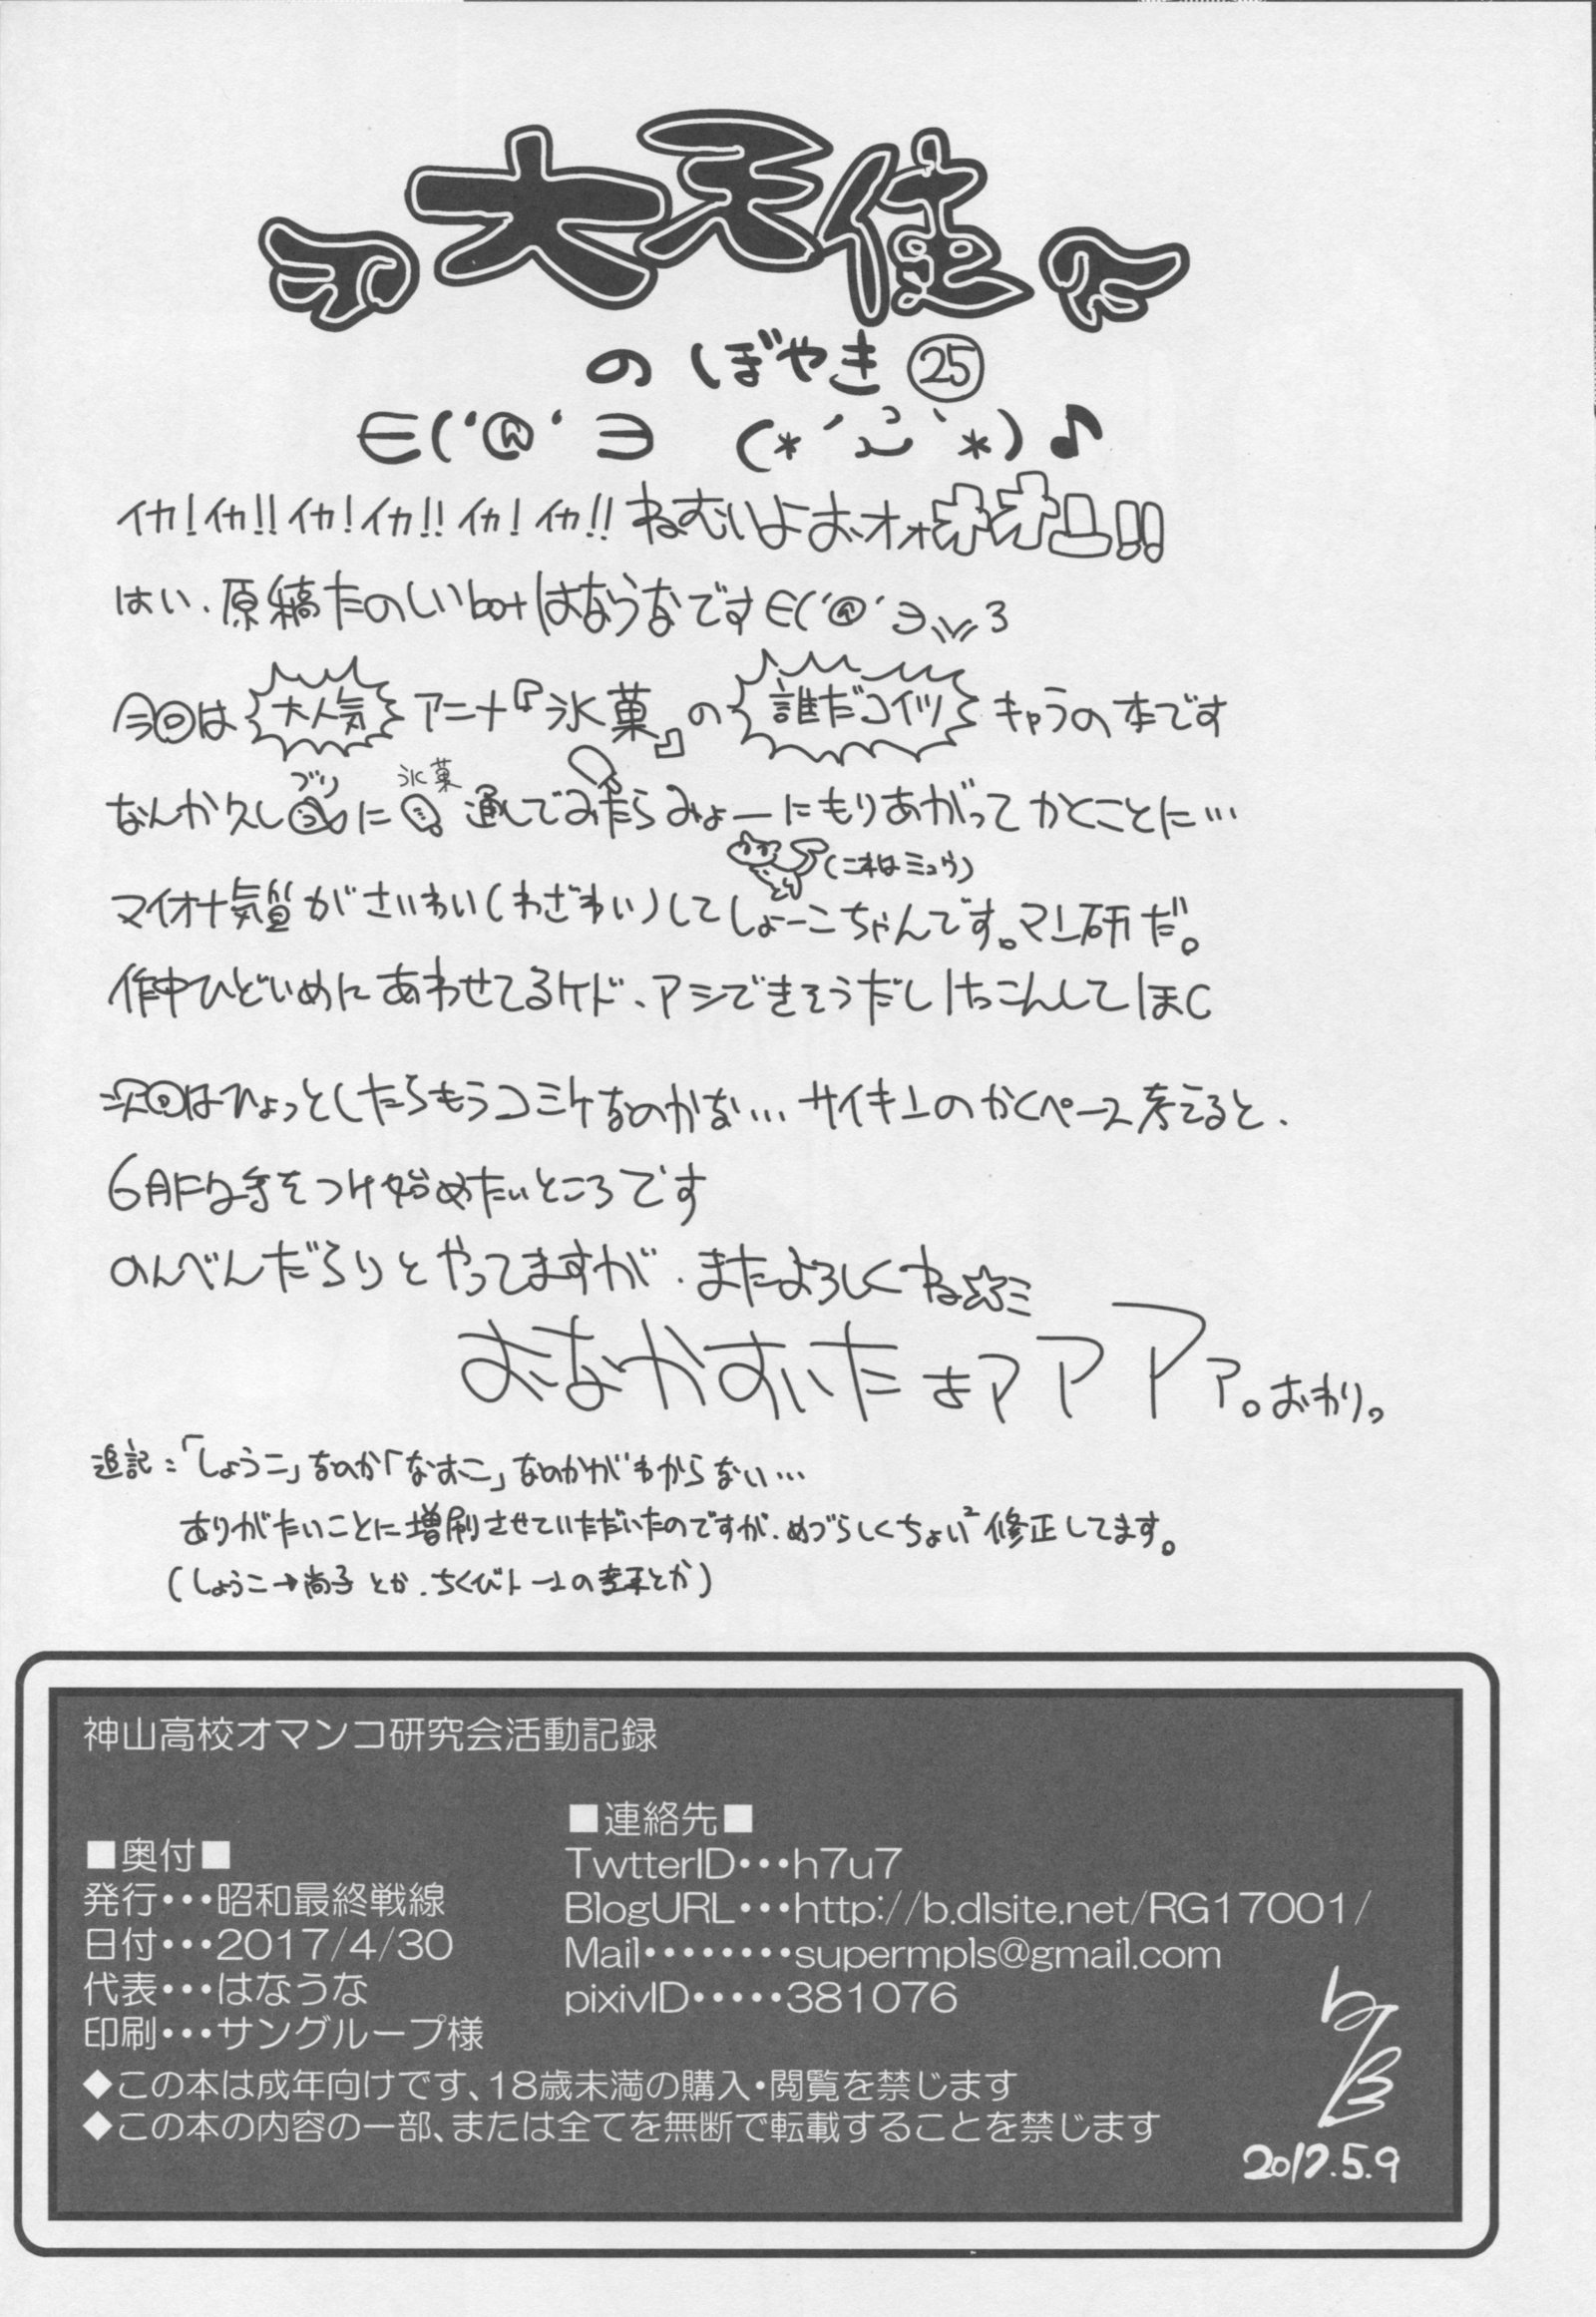 大天使
のぼやき㉕
∈('@'∋ (*´`*)♪
イカ!イカ!!イカ!イカ!!イカ!イカ!!ねむいよおオォオオ!!
はい、原稿たのしいbotはなうなです∈('@'∋ 3
今回は大人気アニメ『氷菓』の誰だコイツキャラの本です
ブリ 氷菓
なんか久しに通しでみたらみょーにもりあがってかくことに…
(これはミュウ)
マイナー気質がさいわい(わざわい)してしょーこちゃんです。マン研だ。
作中ひどいめにあわせてるケド、アシできそうだしけっこんしてほC
次回はひょっとしたらもうコミケなのかな…サイキンのかくペース考えると、
6月には手をつけ始めたいところです
のんべんだらりとやってますが、またよろしくね☆ミ
おなかすいたよアアアァ。おわり。
追記:「しょうこ」なのか「なおこ」なのかがわからない…
ありがたいことに増刷させていただいたのですが、めづらしくちょい²修正してます。
(しょうこ→尚子とか、ちくびトーンのとか)
神山高校オマンコ研究会活動記録
■奥付■
発行・・・昭和最終戦線
日付・・・2017/4/30
代表・・・はなうな
印刷・・・サングループ様
■連絡先■
TwtterID・・・h7u7
BlogURL・・・http://b.dlsite.net/RG17001/
Mail・・・・・・・・supermpls@gmail.com
pixivID・・・・・381076
◆この本は成年向けです、18歳未満の購入・閲覧を禁じます
◆この本の内容の一部、または全てを無断で転載することを禁じます
2017.5.9